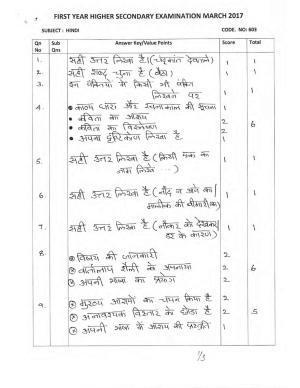 FIRST YEAR HIGHER SECONDARY EXAMINATION MARCH 2017
SUBJECT : HINDI CODE. NO: 603
Qn No Sub Qns Answer Key/Value Points Score Total
1. सही उत्तर लिखा है। (चंद्रकांत देवताले) 1 1
2. सही शब्द चुना है (बैठा) 1 1
3. इन पंक्तियों में किसी भी पंक्ति लिखने पर 1 1
4. काव्य धारा और रचनाकाल की सूचना 1
कविता का आशय 2 6
कविता का विश्लेषण 2
अपना दृष्टिकोण लिखा है 1
5. सही उत्तर लिखा है (किसी एक का नाम लिखें ...) 1 1
6. सही उत्तर लिखा है (नींद न आने का/ मालिक की बीमारी का) 1 1
7. सही उत्तर लिखा है (नौकर को देखकर/ डर के कारण) 1 1
8. विषय की जानकारी 2
वार्तालाप शैली को अपनाया 2 6
अपनी भाषा का प्रयोग 2
9. मुख्य आशयों का चयन किया है 2
अनावश्यक विस्तार को छोड़ा है 2 5
अपनी भाषा में आशय की प्रस्तुति 1
1/3